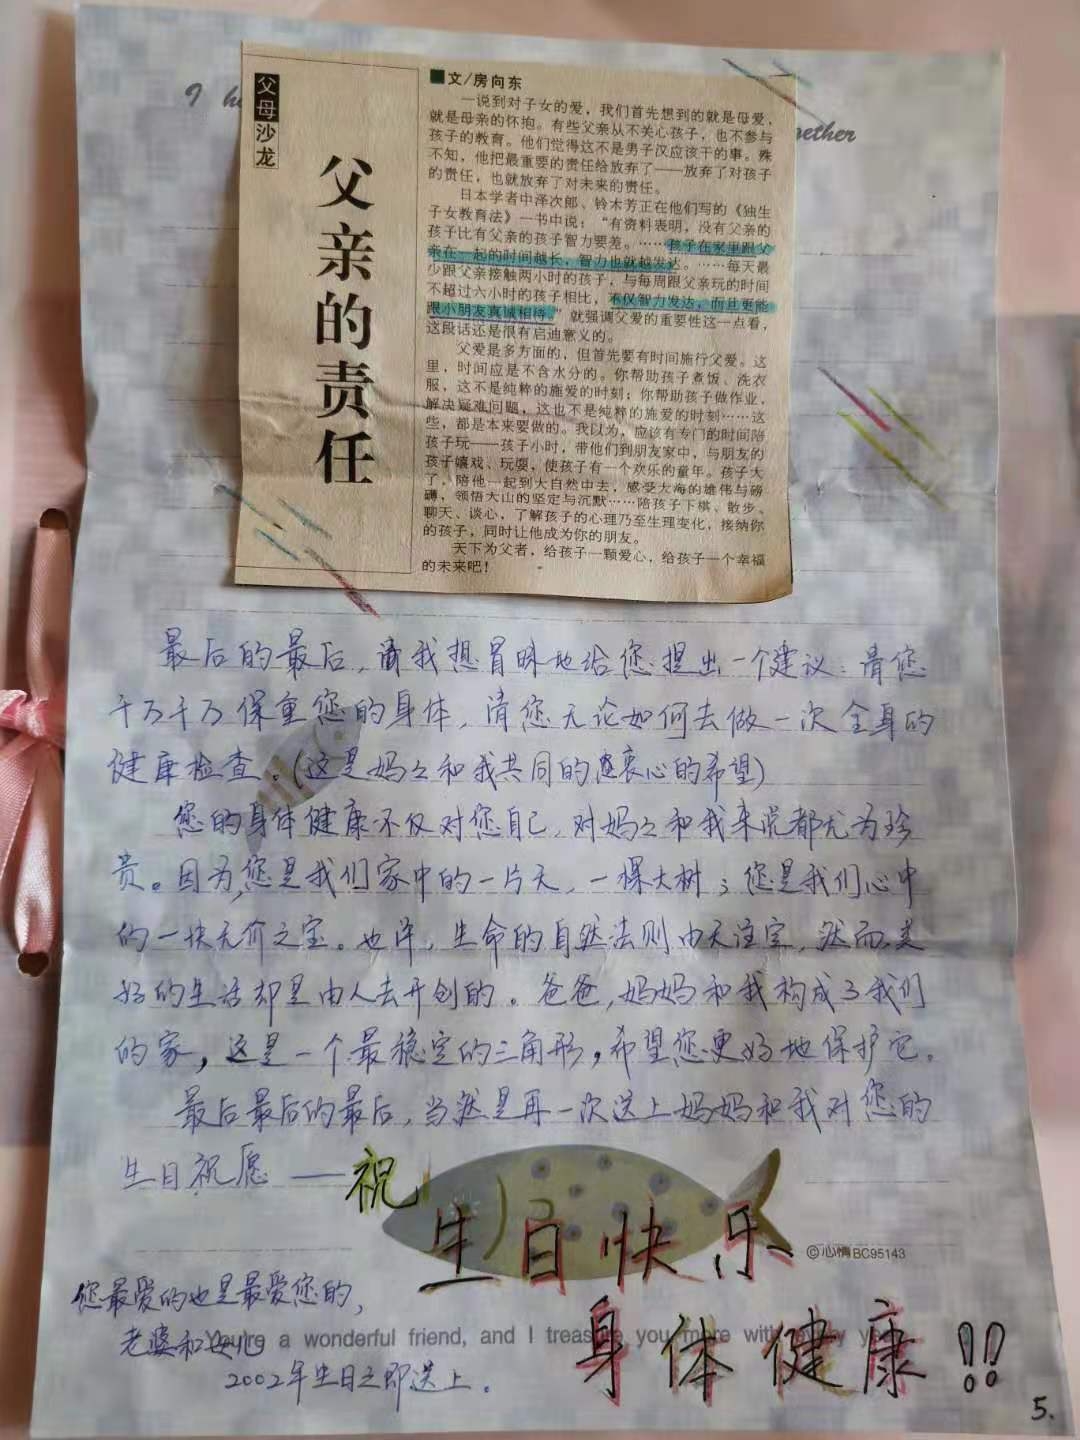 父母沙龙
父亲的责任
■文/房向东
一说到对子女的爱，我们首先想到的就是母爱，
就是母亲的怀抱。有些父亲从不关心孩子，也不参与
孩子的教育。他们觉得这不是男子汉应该干的事。殊
不知，他把最重要的责任给放弃了——放弃了对孩子
的责任，也就放弃了对未来的责任。
日本学者中泽次郎、铃木芳正在他们写的《独生
子女教育法》一书中说：“有资料表明，没有父亲的
孩子比有父亲的孩子智力要差。……孩子在家里跟父
亲在一起的时间越长，智力也就越发达。……每天最
少跟父亲接触两小时的孩子，与每周跟父亲玩的时间
不超过六小时的孩子相比，不仅智力发达，而且更能
跟小朋友真诚相待。”就强调父爱的重要性这一点看，
这段话还是很有启迪意义的。
父爱是多方面的，但首先要有时间施行父爱。这
里，时间应是不含水分的。你帮助孩子煮饭、洗衣
服，这不是纯粹的施爱的时刻；你帮助孩子做作业，
解决疑难问题，这也不是纯粹的施爱的时刻……这
些，都是本来要做的。我以为，应该有专门的时间陪
孩子玩——孩子小时，带他们到朋友家中，与朋友的
孩子嬉戏、玩耍，使孩子有一个欢乐的童年。孩子大
了，陪他一起到大自然中去，感受大海的雄伟与磅
礴，领悟大山的坚定与沉默……陪孩子下棋、散步、
聊天、谈心，了解孩子的心理乃至生理变化，接纳你
的孩子，同时让他成为你的朋友。
天下为父者，给孩子一颗爱心，给孩子一个幸福
的未来吧！
最后的最后，我想冒昧地给您提出一个建议：请您
千万千万保重您的身体，请您无论如何去做一次全身的
健康检查。（这是妈々和我共同的衷心的希望）
您的身体健康不仅对您自己，对妈々和我来说都尤为珍
贵。因为，您是我们家中的一片天，一棵大树；您是我们心中
的一块无价之宝。也许，生命的自然法则由天注定，然而美
好的生活却是由人去开创的。爸爸，妈妈和我构成了我们
的家，这是一个最稳定的三角形，希望您更好地保护它。
最后最后的最后，当然是再一次送上妈妈和我对您的
生日祝愿——祝
生日快乐
身体健康!!
©心情BC95143
您最爱的也是最爱您的，
老婆和女儿
2002年生日之即送上。
You're a wonderful friend, and I treasure you more with every
5.